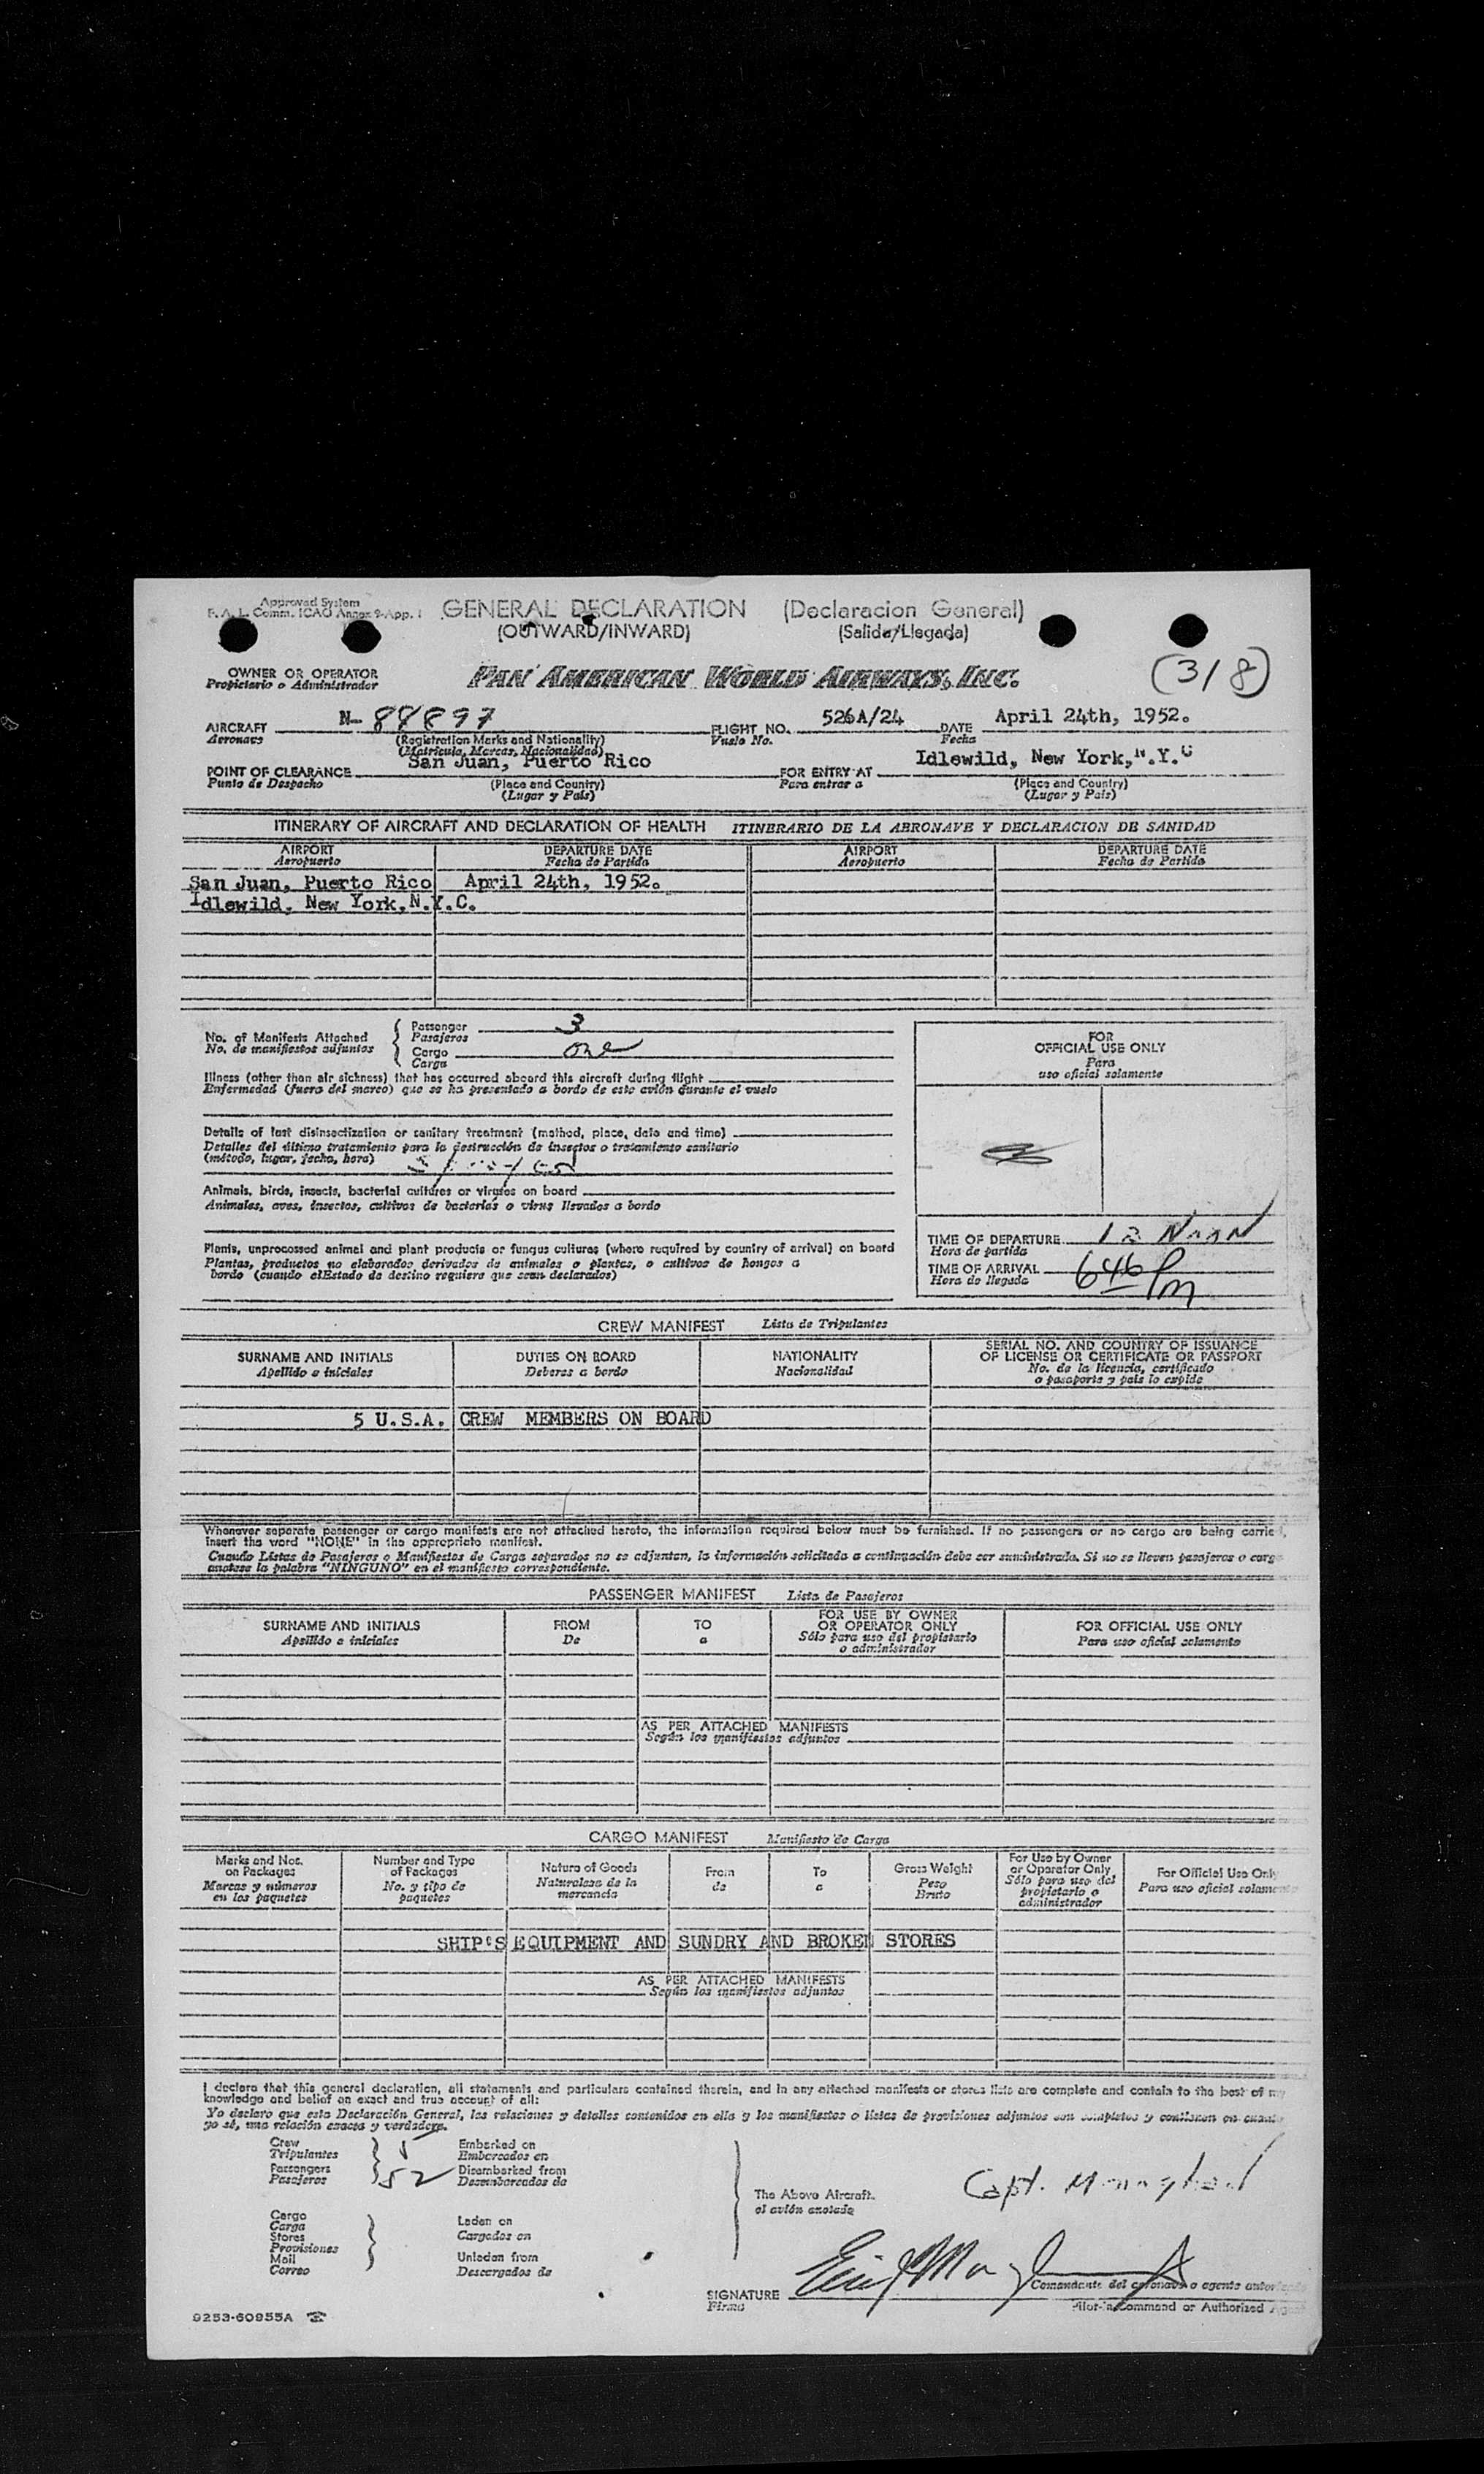 Approved System
F.A.L. Comm. ICAO Annex 9-App. 1
GENERAL DECLARATION (Declaracion General)
(OUTWARD/INWARD) (Salida/Llegada)
OWNER OR OPERATOR PAN AMERICAN WORLD AIRWAYS, INC. (318)
Propietario o Administrador
AIRCRAFT N-88897 FLIGHT NO. 526A/24 DATE April 24th, 1952.
Aeronave (Registration Marks and Nationality) Vuelo No. Fecha
(Matricula, Marcas, Nacionalidad)
POINT OF CLEARANCE San Juan, Puerto Rico FOR ENTRY AT Idlewild, New York, N.Y.C
Punto de Despacho (Place and Country) Para entrar a (Place and Country)
(Lugar y País) (Lugar y País)
ITINERARY OF AIRCRAFT AND DECLARATION OF HEALTH ITINERARIO DE LA AERONAVE Y DECLARACION DE SANIDAD
AIRPORT DEPARTURE DATE AIRPORT DEPARTURE DATE
Aeropuerto Fecha de Partida Aeropuerto Fecha de Partida
San Juan, Puerto Rico April 24th, 1952.
Idlewild, New York, N.Y.C.
No. of Manifests Attached Passenger 3
No. de manifiestos adjuntos Pasajeros
Cargo one
Carga
FOR
OFFICIAL USE ONLY
Para
uso oficial solamente
Illness (other than air sickness) that has occurred aboard this aircraft during flight
Enfermedad (fuera del mareo) que se ha presentado a bordo de este avión durante el vuelo
Details of last disinsectization or sanitary treatment (method, place, date and time)
Detalles del último tratamiento para la destrucción de insectos o tratamiento sanitario
(método, lugar, fecha, hora) Sprayed
Animals, birds, insects, bacterial cultures or viruses on board
Animales, aves, insectos, cultivos de bacterias o virus llevados a bordo
TIME OF DEPARTURE 12 Noon
Hora de partida
TIME OF ARRIVAL 646 Pm
Hora de llegada
Plants, unprocessed animal and plant products or fungus cultures (where required by country of arrival) on board
Plantas, productos no elaborados derivados de animales o plantas, o cultivos de hongos a
bordo (cuando el Estado de destino requiere que sean declarados)
CREW MANIFEST Lista de Tripulantes
SURNAME AND INITIALS DUTIES ON BOARD NATIONALITY SERIAL NO. AND COUNTRY OF ISSUANCE
OF LICENSE OR CERTIFICATE OR PASSPORT
Apellido e iniciales Deberes a bordo Nacionalidad No. de la licencia, certificado
o pasaporte y país lo expide
5 U.S.A. CREW MEMBERS ON BOARD
Whenever separate passenger or cargo manifests are not attached hereto, the information required below must be furnished. If no passengers or no cargo are being carried,
insert the word "NONE" in the appropriate manifest.
Cuando Listas de Pasajeros o Manifiestos de Carga separados no se adjuntan, la información solicitada a continuación debe ser suministrada. Si no se lleven pasajeros o carg
anotese la palabra "NINGUNO" en el manifiesto correspondiente.
PASSENGER MANIFEST Lista de Pasajeros
SURNAME AND INITIALS FROM TO FOR USE BY OWNER
OR OPERATOR ONLY FOR OFFICIAL USE ONLY
Apellido e iniciales De a Sólo para uso del propietario
o administrador Para uso oficial solamente
AS PER ATTACHED MANIFESTS
Según los manifiestos adjuntos
CARGO MANIFEST Manifiesto de Carga
Marks and Nos.
on Packages
Marcas y números
en los paquetes
Number and Type
of Packages
No. y tipo de
paquetes
Nature of Goods
Naturaleza de la
mercancía
From
de
To
a
Gross Weight
Peso
Bruto
For Use by Owner
or Operator Only
Sólo para uso del
propietario o
administrador
For Official Use Only
Para uso oficial solamente
SHIP'S EQUIPMENT AND SUNDRY AND BROKEN STORES
AS PER ATTACHED MANIFESTS
Según los manifiestos adjuntos
I declare that this general declaration, all statements and particulars contained therein, and in any attached manifests or stores lists are complete and contain to the best of my
knowledge and belief an exact and true account of all:
Yo declaro que esta Declaración General, las relaciones y detalles contenidos en ella y los manifiestos o listas de provisiones adjuntos son completos y contienen en cuanto
yo sé, una relación exacta y verdadera.
Crew 5 Embarked on
Tripulantes Embarcados en
Passengers 52 Disembarked from
Pasajeros Desembarcados de
Cargo
Carga
Stores
Provisiones
Mail
Correo
Laden on
Cargados en
Unladen from
Descargados de
The Above Aircraft.
el avión anotado
Capt. Monaghan
SIGNATURE
Firma
Comandante del aeronave o agente autorizado
Pilot-in-Command or Authorized Agent
9253-60955A